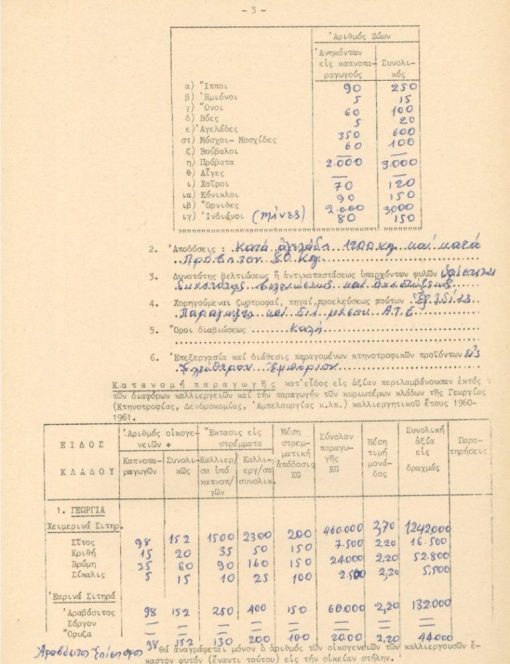 - 3 -
Ἀριθμός Ζώων
Ἀνηκόντων εἰς καπνοπαραγωγούς Συνολικός
α) Ἵπποι 90 250
β) Ἡμιόνοι 5 15
γ) Ὄνοι 60 100
δ) Βόες 5 20
ε) Ἀγελάδες 350 600
στ) Μόσχοι- Μοσχίδες 60 100
ζ) Βούβαλοι — —
η) Πρόβατα 2.000 3.000
θ) Αἶγες — —
ι) Χοῖροι 70 120
ια) Κόνικλοι 90 150
ιβ) Ὄρνιθες 2.000 3000
ιγ) Ἰνδιάνοι (Χῆνες) 80 150
2. Ἀποδόσεις : Κατά ἀγελάδα 1200 Kg καί κατά
Πρόβατον 80 Kg
3. Δυνατότης βελτιώσεως ἤ ἀντικαταστάσεως ὑπαρχόντων φυλῶν
δυνατότης βελτιώσεως καί
4. Χορηγούμεναι ζωοτροφαί, πηγαί προελεύσεως τούτων
Παραγωγῆς καί διά μέσου Α.Τ.Ε.
5. Ὅροι διαβιώσεως Καλή
6. Ἐπεξεργασία καί διάθεσις παραγομένων κτηνοτροφικῶν προϊόντων εἰς
Ἐλεύθερον Ἐμπόριον
Κατανομή παραγωγῆς κατ'εἶδος εἰς ἀξίαν περιλαμβάνουσαν ἐκτός
τῶν διαφόρων καλλιεργειῶν καί τήν παραγωγήν τῶν κυριωτέρων κλάδων τῆς Γεωργίας
(Κτηνοτροφίας, Δενδροκομίας, Ἀμπελουργίας κ.λπ.) καλλιεργητικοῦ ἔτους 1960-
1961.
ΕΙΔΟΣ ΚΛΑΔΟΥ Ἀριθμός οἰκογενειῶν + Ἔκτασις εἰς στρέμματα Μέση στρεμματική ἀπόδοσις KG Σύνολον παραγωγῆς KG Μέση τιμή μονάδος Συνολική ἀξία εἰς δραχμάς Παρατηρήσεις
Καπνοπαραγωγῶν Συνολικῶς Καλλιερ/σα ὑπό καπνοπ/γῶν Καλλιεργ/σα συνολικ.
1. ΓΕΩΡΓΙΑ
Χειμερινά Σιτηρ.
Σῖτος 98 152 1500 2300 200 460.000 2,70 1242000
Κριθή 15 20 35 50 150 7.500 2,20 16.500
Βρώμη 35 60 90 160 150 24000 2,20 52.800
Σίκαλις 5 15 10 25 100 2500 2,20 5,500
Ἐαρινά Σιτηρά
Ἀραβόσιτος 98 152 250 400 150 60.000 2,20 132.000
Σόργον — — — — — — — —
Ὄρυζα — — — — — — — —
Ἀραβόσιτος ἐπίσπορος 98 152 130 200 100 20.00 2.20 44.000
Θά ἀναγράφεται μόνον ὁ ἀριθμός τῶν οἰκογενειῶν τῶν καλλιεργουσῶν ἕ-
καστον φυτόν (ἔναντι τούτου) εἰς τήν οἰκείαν στήλην.